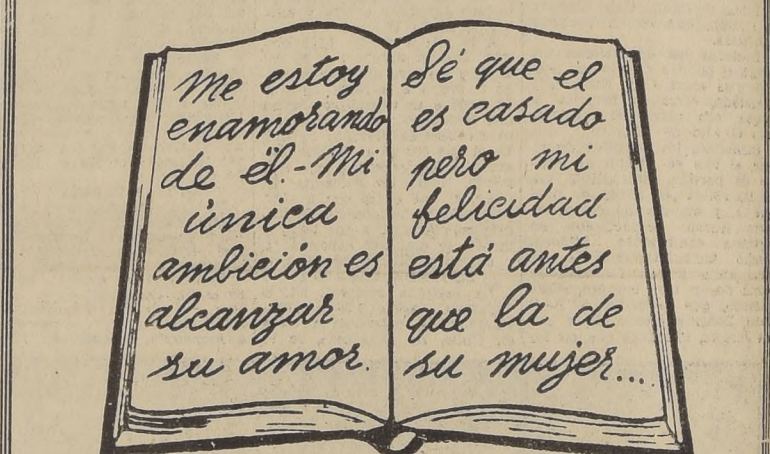 Me estoy
enamorando
de él.- Mi
única
ambición es
alcanzar
su amor.
Sé que el
es casado
pero mi
felicidad
está antes
que la de
su mujer....